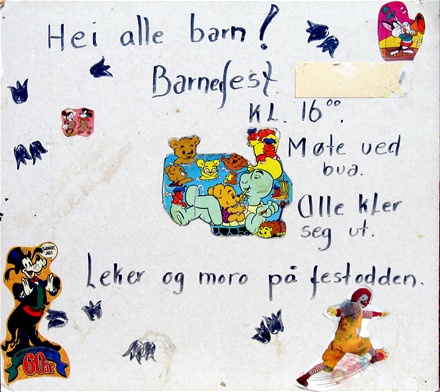 Hei alle barn!
Barnefest
KL. 16 00.
Møte ved
bua.
Alle kler
seg ut.
Leker og moro på festodden.
60 år